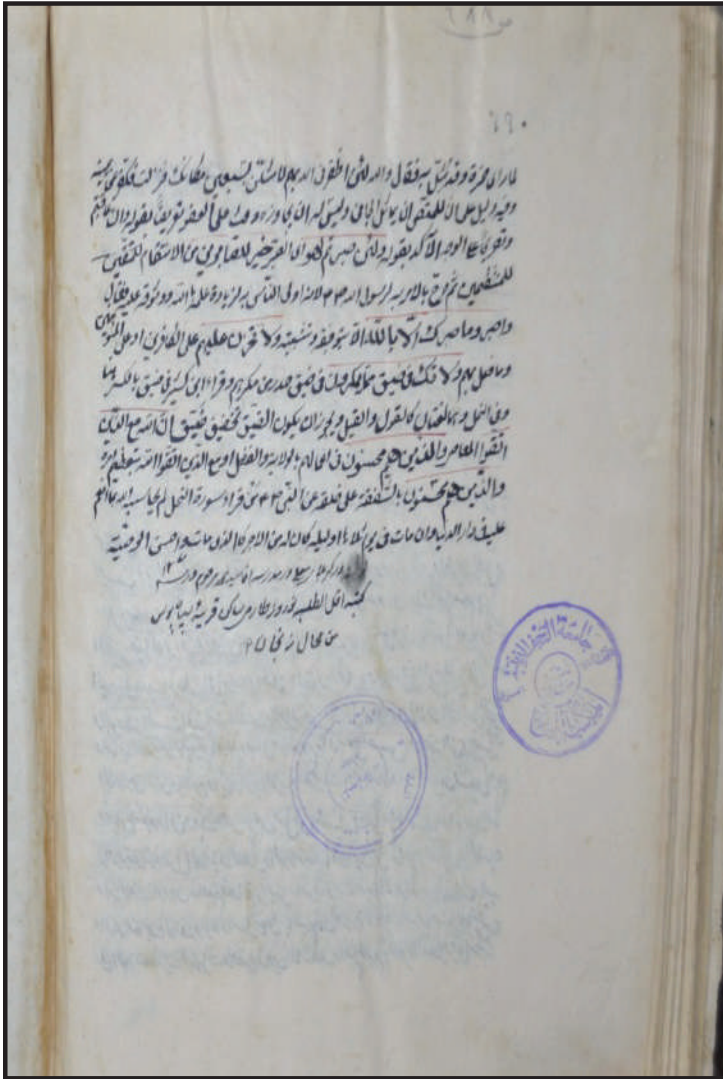 لما رأى حمزة وقد مثل به فقال والله لئن اظفرنى الله بهم لامثلن بسبعين مكانك فنزلت فكفر عن يمينه
وفيه دليل على ان للمقتص ان يماثل الجانى وليس له ان يجاوزه وحث على العفو تعريضا بقوله وان عاقبتم
وتصريحا على الوجه الآكد بقوله ولئن صبرتم لهو اى الصبر خير للصابرين من الانتقام للمنتقمين
ثم صرح بالامر به لرسول الله لانه اولى الناس به لزيادة علمه بالله ووثوقه عليه فقال
واصبر وما صبرك الا بالله الا بتوفيقه وتثبيته ولا تحزن عليهم على الكافرين او على المؤمنين
وما فعل بهم ولا تك فى ضيق مما يمكرون فى ضيق صدر من مكرهم وقراء ابن كثير فى ضيق بالكسر هنا
وفى النمل وهما لغتان كالقول والقيل ويجوز ان يكون الضيق تخفيف ضيق ان الله مع الذين
اتقوا المعاصى والذين هم محسنون فى اعمالهم بالولاية والفضل او مع الذين اتقوا الله بتعظيم امره
والذين هم محسنون بالشفقة على خلقه عن النبى من قراء سورة النحل لم يحاسبه الله بما انعم
عليه فى دار الدنيا وان مات فى يوم تلاها او ليلة كان له من الاجر كالذى مات واحسن الوصية
كتبه اقل الطلبه قرية
من محال زنجان